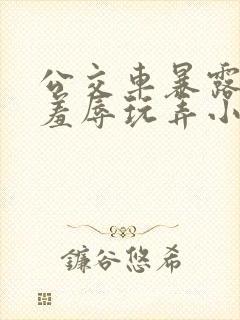 公交车暴露
羞辱玩弄小
鐮谷悠希